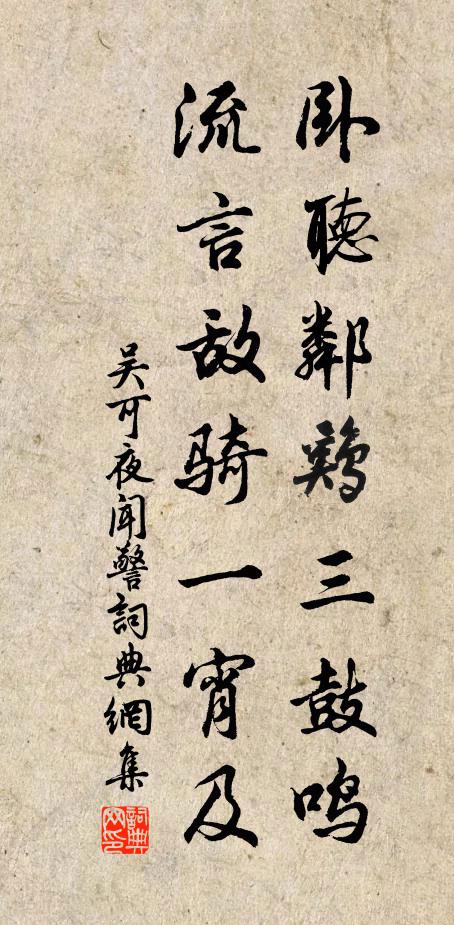 卧聽鄰鷄三鼓鳴
流言敌骑一宵及
吴可夜闻警詞典網集
詞典网印